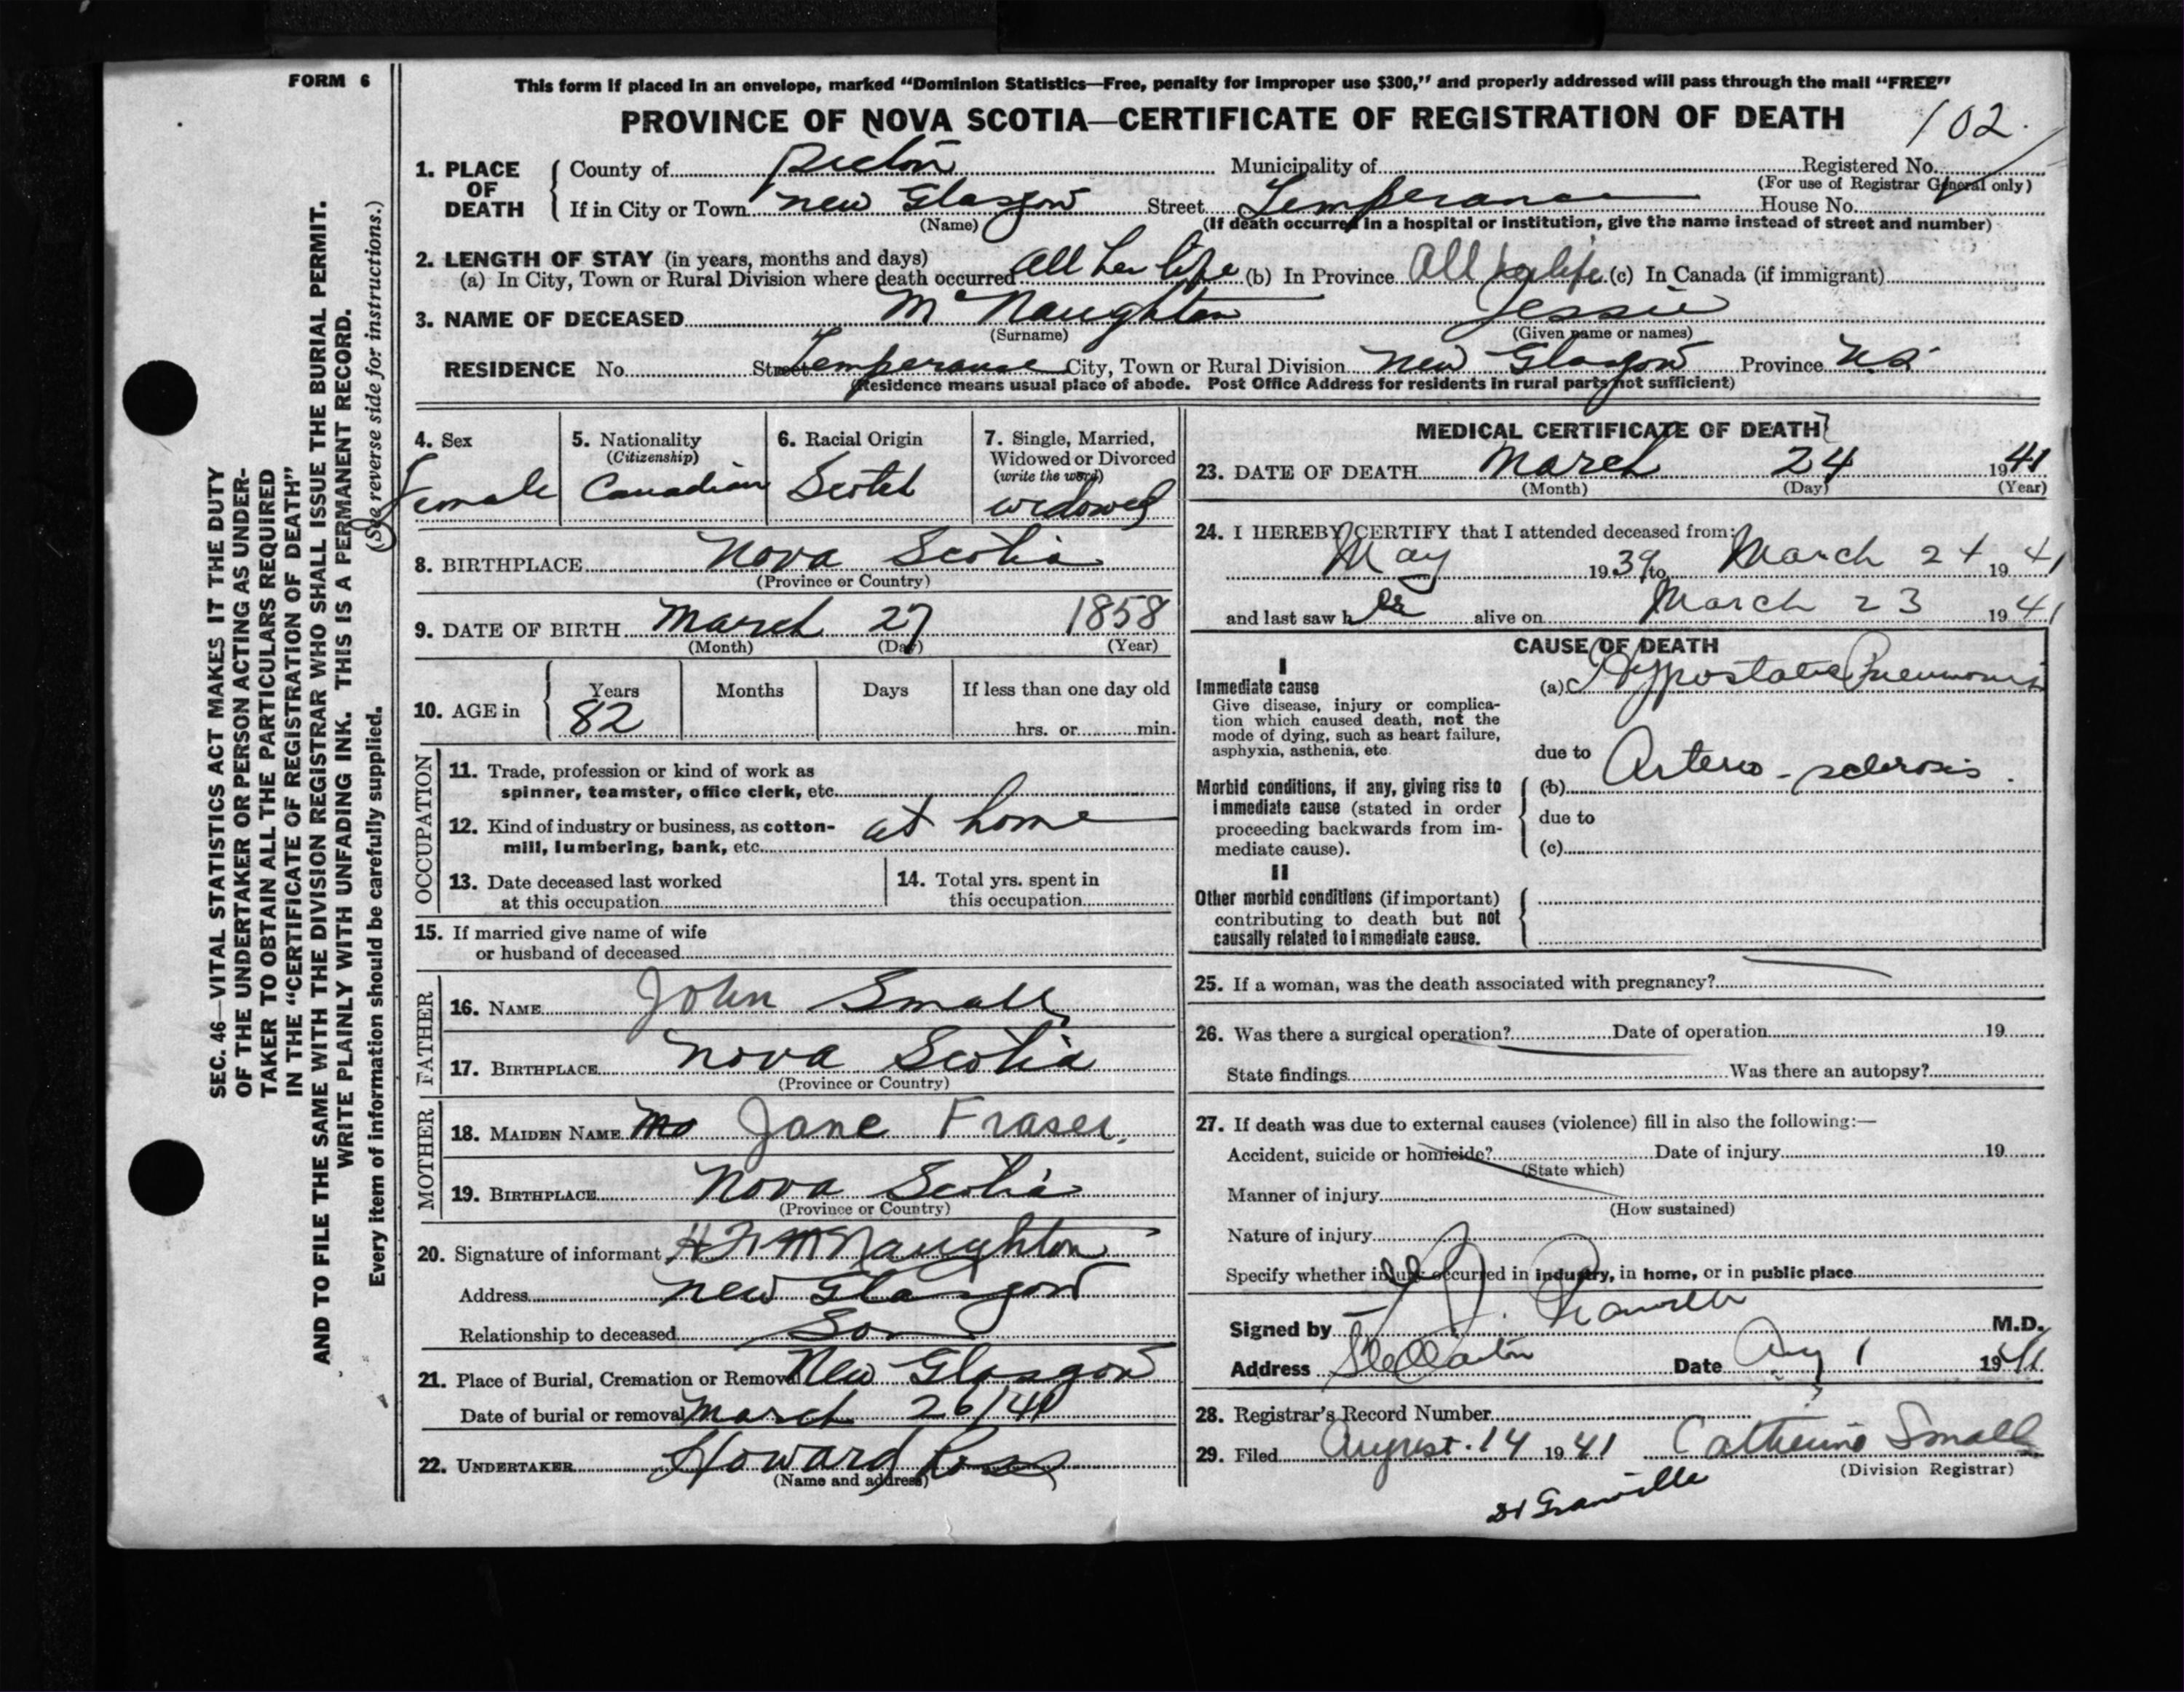 FORM 6
This form if placed in an envelope, marked “Dominion Statistics—Free, penalty for improper use $300,” and properly addressed will pass through the mail “FREE”
PROVINCE OF NOVA SCOTIA—CERTIFICATE OF REGISTRATION OF DEATH
102.
SEC. 46—VITAL STATISTICS ACT MAKES IT THE DUTY
OF THE UNDERTAKER OR PERSON ACTING AS UNDER-
TAKER TO OBTAIN ALL THE PARTICULARS REQUIRED
IN THE “CERTIFICATE OF REGISTRATION OF DEATH”
AND TO FILE THE SAME WITH THE DIVISION REGISTRAR WHO SHALL ISSUE THE BURIAL PERMIT.
WRITE PLAINLY WITH UNFADING INK. THIS IS A PERMANENT RECORD.
Every item of information should be carefully supplied. (See reverse side for instructions.)
1. PLACE OF DEATH
County of Pictou Municipality of Registered No.
(For use of Registrar General only)
If in City or Town New Glasgow Street Temperance House No.
(Name) (If death occurred in a hospital or institution, give the name instead of street and number)
2. LENGTH OF STAY (in years, months and days)
(a) In City, Town or Rural Division where death occurred All her life (b) In Province All her life (c) In Canada (if immigrant)
3. NAME OF DECEASED McNaughton Jessie
(Surname) (Given name or names)
RESIDENCE No. Street Temperance City, Town or Rural Division New Glasgow Province N.S.
(Residence means usual place of abode. Post Office Address for residents in rural parts not sufficient)
4. Sex
Female
5. Nationality
(Citizenship)
Canadian
6. Racial Origin
Scotch
7. Single, Married,
Widowed or Divorced
(write the word)
widowed
8. BIRTHPLACE Nova Scotia
(Province or Country)
9. DATE OF BIRTH March 27 1858
(Month) (Day) (Year)
10. AGE in
Years Months Days If less than one day old
82 hrs. or min.
OCCUPATION
11. Trade, profession or kind of work as
spinner, teamster, office clerk, etc.
12. Kind of industry or business, as cotton-
mill, lumbering, bank, etc. at home
13. Date deceased last worked
at this occupation
14. Total yrs. spent in
this occupation
15. If married give name of wife
or husband of deceased
FATHER
16. NAME John Small
17. BIRTHPLACE Nova Scotia
(Province or Country)
MOTHER
18. MAIDEN NAME Jane Fraser.
19. BIRTHPLACE Nova Scotia
(Province or Country)
20. Signature of informant McNaughton
Address New Glasgow
Relationship to deceased Son
21. Place of Burial, Cremation or Removal New Glasgow
Date of burial or removal March 26/41
22. UNDERTAKER Howard Ross
(Name and address)
MEDICAL CERTIFICATE OF DEATH
23. DATE OF DEATH March 24 1941
(Month) (Day) (Year)
24. I HEREBY CERTIFY that I attended deceased from:
May 1939 to March 24 1941
and last saw her alive on March 23 1941
CAUSE OF DEATH
I
Immediate cause
Give disease, injury or complica-
tion which caused death, not the
mode of dying, such as heart failure,
asphyxia, asthenia, etc.
(a) Hypostatic Pneumonia
due to
Morbid conditions, if any, giving rise to
immediate cause (stated in order
proceeding backwards from im-
mediate cause).
(b) Arterio-sclerosis.
due to
(c)
II
Other morbid conditions (if important)
contributing to death but not
causally related to immediate cause.
25. If a woman, was the death associated with pregnancy?
26. Was there a surgical operation? Date of operation 19
State findings Was there an autopsy?
27. If death was due to external causes (violence) fill in also the following:—
Accident, suicide or homicide? Date of injury 19
(State which)
Manner of injury
(How sustained)
Nature of injury
Specify whether injury occurred in industry, in home, or in public place
Signed by Granville M.D.
Address Stellarton Date Aug 1 1941
28. Registrar's Record Number
29. Filed August 14 1941 Catherine Small
(Division Registrar)
Dr Granville